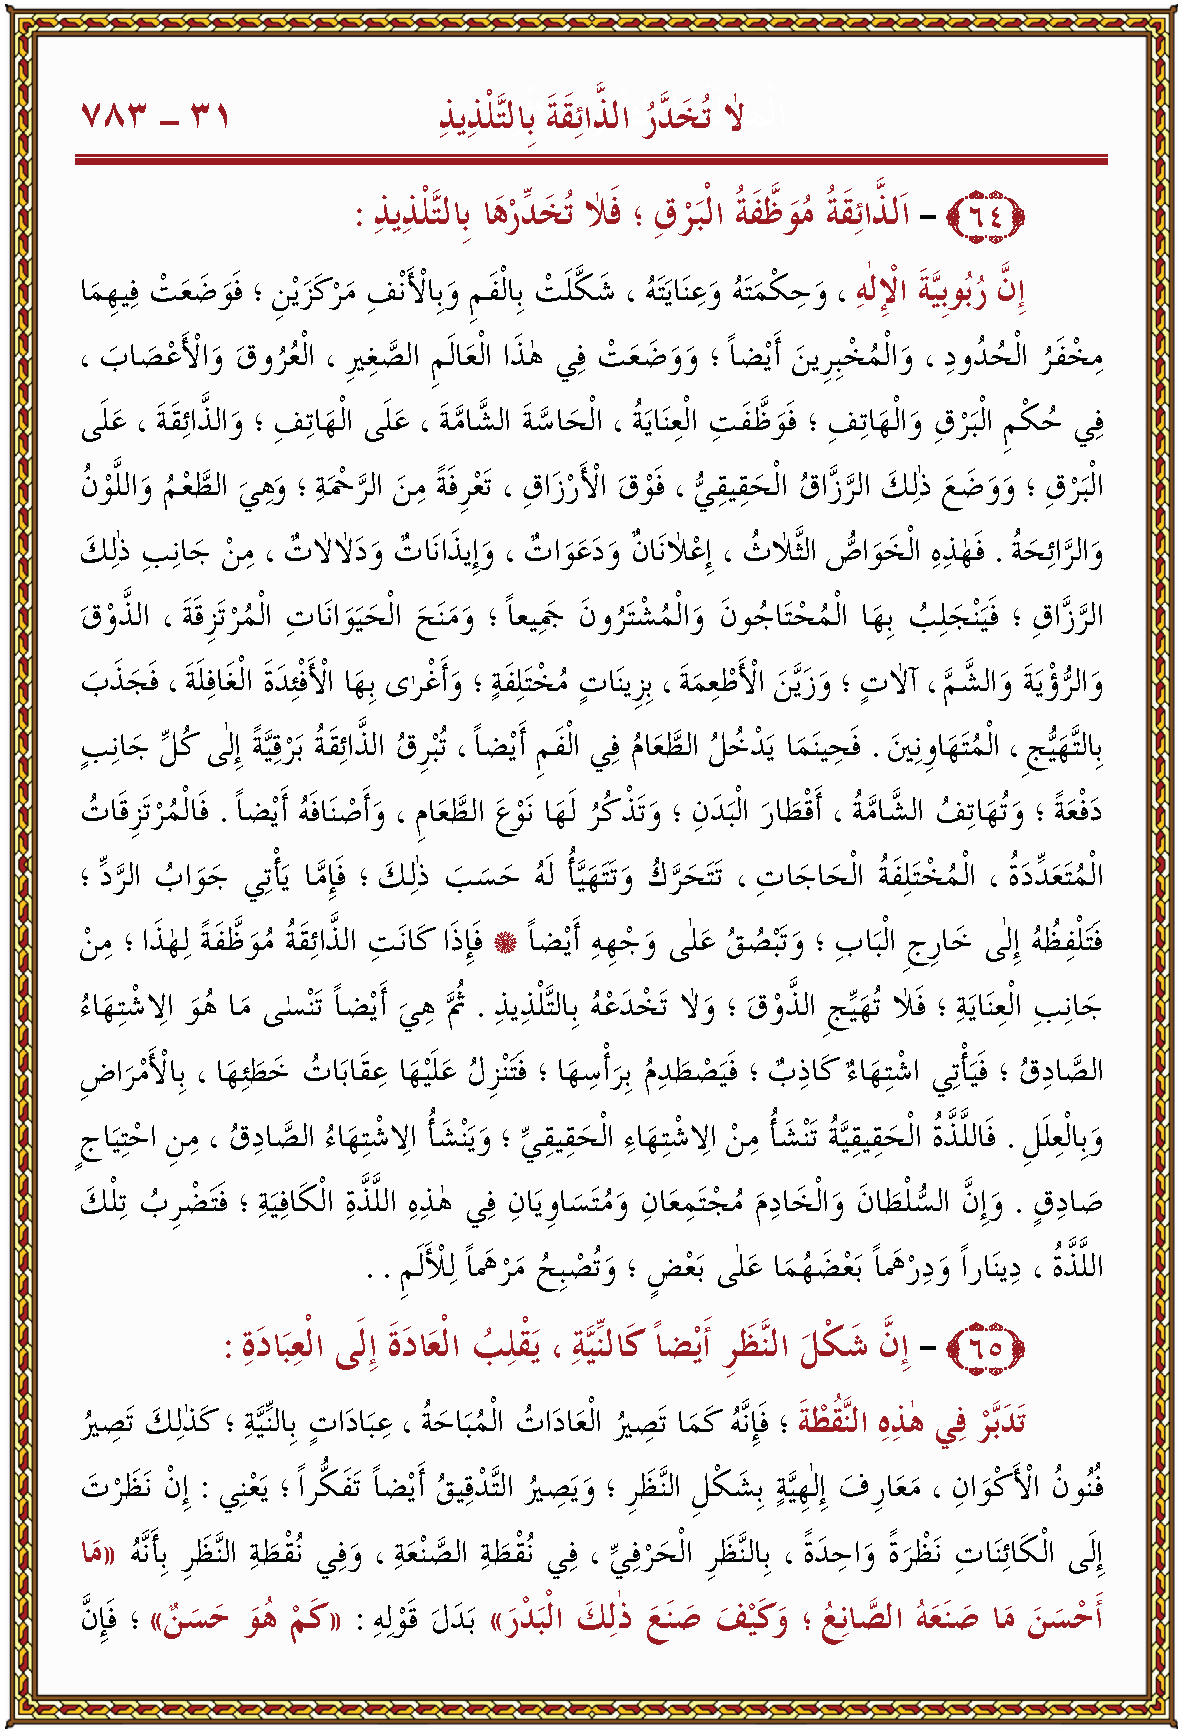 لاٰ تُخَدَّرُ الذَّائِقَةَ بِالتَّلْذِيذِ ٣١ – ٧٨٣
﴿٦٤﴾ – اَلذَّائِقَةُ مُوَظَّفَةُ الْبَرْقِ ؛ فَلاٰ تُخَدِّرْهَا بِالتَّلْذِيذِ :
إِنَّ رُبُوبِيَّةَ الْإِلٰهِ ، وَحِكْمَتَهُ وَعِنَايَتَهُ ، شَكَّلَتْ بِالْفَمِ وَبِالْأَنْفِ مَرْكَزَيْنِ ؛ فَوَضَعَتْ فِيهِمَا
مِخْفَرَ الْحُدُودِ ، وَالْمُخْبِرِينَ أَيْضاً ؛ وَوَضَعَتْ فِي هٰذَا الْعَالَمِ الصَّغِيرِ ، الْعُرُوقَ وَالْأَعْصَابَ ،
فِي حُكْمِ الْبَرْقِ وَالْهَاتِفِ ؛ فَوَظَّفَتِ الْعِنَايَةُ ، الْحَاسَّةَ الشَّامَّةَ ، عَلَى الْهَاتِفِ ؛ وَالذَّائِقَةَ ، عَلَى
الْبَرْقِ ؛ وَوَضَعَ ذٰلِكَ الرَّزَّاقُ الْحَقِيقِيُّ ، فَوْقَ الْأَرْزَاقِ ، تَعْرِفَةً مِنَ الرَّحْمَةِ ؛ وَهِيَ الطَّعْمُ وَاللَّوْنُ
وَالرَّائِحَةُ . فَهٰذِهِ الْخَوَاصُّ الثَّلاٰثُ ، إِعْلاٰنَانٌ وَدَعَوَاتٌ ، وَإِيذَانَاتٌ وَدَلاٰلاٰتٌ ، مِنْ جَانِبِ ذٰلِكَ
الرَّزَّاقِ ؛ فَيَنْجَلِبُ بِهَا الْمُحْتَاجُونَ وَالْمُشْتَرُونَ جَمِيعاً ؛ وَمَنَحَ الْحَيَوَانَاتِ الْمُرْتَزِقَةَ ، الذَّوْقَ
وَالرُّؤْيَةَ وَالشَّمَّ ، آلاٰتٍ ؛ وَزَيَّنَ الْأَطْعِمَةَ ، بِزِينَاتٍ مُخْتَلِفَةٍ ؛ وَأَغْرٰى بِهَا الْأَفْئِدَةَ الْغَافِلَةَ ، فَجَذَبَ
بِالتَّهَيُّجِ ، الْمُتَهَاوِنِينَ . فَحِينَمَا يَدْخُلُ الطَّعَامُ فِي الْفَمِ أَيْضاً ، تُبْرِقُ الذَّائِقَةُ بَرْقِيَّةً إِلٰى كُلِّ جَانِبٍ
دَفْعَةً ؛ وَتُهَاتِفُ الشَّامَّةُ ، أَقْطَارَ الْبَدَنِ ؛ وَتَذْكُرُ لَهَا نَوْعَ الطَّعَامِ ، وَأَصْنَافَهُ أَيْضاً . فَالْمُرْتَزِقَاتُ
الْمُتَعَدِّدَةُ ، الْمُخْتَلِفَةُ الْحَاجَاتِ ، تَتَحَرَّكُ وَتَتَهَيَّأُ لَهُ حَسَبَ ذٰلِكَ ؛ فَإِمَّا يَأْتِي جَوَابُ الرَّدِّ ؛
فَتَلْفِظُهُ إِلٰى خَارِجِ الْبَابِ ؛ وَتَبْصُقُ عَلٰى وَجْهِهِ أَيْضاً ۞ فَإِذَا كَانَتِ الذَّائِقَةُ مُوَظَّفَةً لِهٰذَا ؛ مِنْ
جَانِبِ الْعِنَايَةِ ؛ فَلاٰ تُهَيِّجِ الذَّوْقَ ؛ وَلاٰ تَخْدَعْهُ بِالتَّلْذِيذِ . ثُمَّ هِيَ أَيْضاً تَنْسٰى مَا هُوَ الاِشْتِهَاءُ
الصَّادِقُ ؛ فَيَأْتِي اشْتِهَاءٌ كَاذِبٌ ؛ فَيَصْطَدِمُ بِرَأْسِهَا ؛ فَتَنْزِلُ عَلَيْهَا عِقَابَاتُ خَطَئِهَا ، بِالْأَمْرَاضِ
وَبِالْعِلَلِ . فَاللَّذَّةُ الْحَقِيقِيَّةُ تَنْشَأُ مِنْ الاِشْتِهَاءِ الْحَقِيقِيِّ ؛ وَيَنْشَأُ الاِشْتِهَاءُ الصَّادِقُ ، مِنِ احْتِيَاجٍ
صَادِقٍ . وَإِنَّ السُّلْطَانَ وَالْخَادِمَ مُجْتَمِعَانِ وَمُتَسَاوِيَانِ فِي هٰذِهِ اللَّذَّةِ الْكَافِيَةِ ؛ فَتَضْرِبُ تِلْكَ
اللَّذَّةُ ، دِينَاراً وَدِرْهَماً بَعْضَهُمَا عَلٰى بَعْضٍ ؛ وَتُصْبِحُ مَرْهَماً لِلْأَلَمِ . .
﴿٦٥﴾ – إِنَّ شَكْلَ النَّظَرِ أَيْضاً كَالنِّيَّةِ ، يَقْلِبُ الْعَادَةَ إِلَى الْعِبَادَةِ :
تَدَبَّرْ فِي هٰذِهِ النُّقْطَةَ ؛ فَإِنَّهُ كَمَا تَصِيرُ الْعَادَاتُ الْمُبَاحَةُ ، عِبَادَاتٍ بِالنِّيَّةِ ؛ كَذٰلِكَ تَصِيرُ
فُنُونُ الْأَكْوَانِ ، مَعَارِفَ إِلٰهِيَّةٍ بِشَكْلِ النَّظَرِ ؛ وَيَصِيرُ التَّدْقِيقُ أَيْضاً تَفَكُّراً ؛ يَعْنِي : إِنْ نَظَرْتَ
إِلَى الْكَائِنَاتِ نَظْرَةً وَاحِدَةً ، بِالنَّظَرِ الْحَرْفِيِّ ، فِي نُقْطَةِ الصَّنْعَةِ ، وَفِي نُقْطَةِ النَّظَرِ بِأَنَّهُ «مَا
أَحْسَنَ مَا صَنَعَهُ الصَّانِعُ ؛ وَكَيْفَ صَنَعَ ذٰلِكَ الْبَدْرَ» بَدَلَ قَوْلِهِ : «كَمْ هُوَ حَسَنٌ» ؛ فَإِنَّ